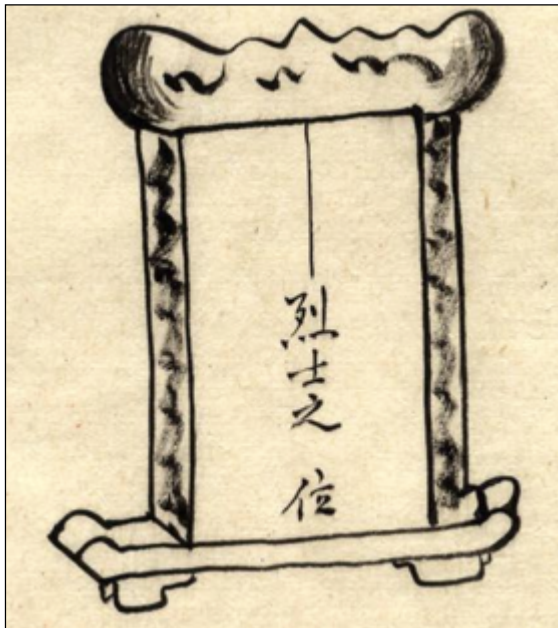 烈士之位